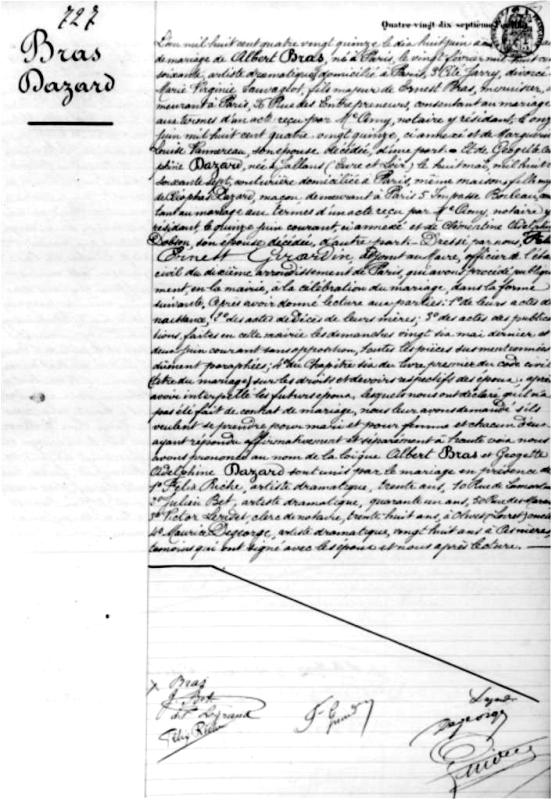 727
Bras
Dazard
Quatre-vingt dix septième
L'an mil huit cent quatre vingt quinze le dix huit juin
de mariage de Albert Bras, né à Paris, le vingt février mil huit cent
soixante, artiste dramatique, domicilié à Paris, 3 Cité Jarry, divorcé
Marie Virginie Sauvaglot, fils majeur de Ernest Bras, menuisier,
meurant à Paris, Rue des Entrepreneurs, consentant au mariage
aux termes d'un acte reçu par Me Cény, notaire y résidant, le onze
juin mil huit cent quatre vingt quinze, ci annexé et de Marguerite
Louise Vannereau, son épouse décédée, d'une part. Et de
Dazard, née à Jallans (Eure et Loir) le huit mai, mil huit
soixante sept, couturière domiciliée à Paris, même maison, fille
de Cléophas Dazard, maçon, demeurant à Paris 5 Impasse
tant au mariage aux termes d'un acte reçu par Me Cény, notaire y
résidant le quinze juin courant, ci annexé et de Clémentine
Dobson, son épouse décédée, d'autre part. Dressé par nous,
Ernest Girardin adjoint au Maire, officier de l'état
civil du dixième arrondissement de Paris, qui avons procédé publique
ment, en la mairie, à la célébration du mariage, dans la forme
suivante. Après avoir donné lecture aux parties: 1° de leurs actes de
naissance, 2° des actes de décès de leurs mères; 3° des actes de publica
tions, faites en cette mairie les dimanches vingt six mai dernier et
deux juin courant sans opposition, toutes les pièces sus mentionnées
dûment paraphées; 4° du Chapitre six du livre premier du code civil
(titre du mariage) sur les droits et devoirs respectifs des époux, après
avoir interpellé les futurs époux, lesquels nous ont déclaré qu'il n'a
pas été fait de contrat de mariage, nous leur avons demandé s'ils
veulent se prendre pour mari et pour femme et chacun d'eux
ayant répondu affirmativement et séparément à haute voix nous
avons prononcé au nom de la loi que Albert Bras et Georgette
Adelphine Dazard sont unis par le mariage en présence de
1° Félix Riche, artiste dramatique, trente ans, 10 Rue de
2° Julien Bet, artiste dramatique, quarante un ans, 20 Rue
3° Victor clerc de notaire, trente huit ans, à
4° Maurice Degeorge, artiste dramatique, vingt huit ans à Asnières,
témoins qui ont signé avec les époux et nous après lecture.
Bras
J. Bet
Félix Riche
Degeorge